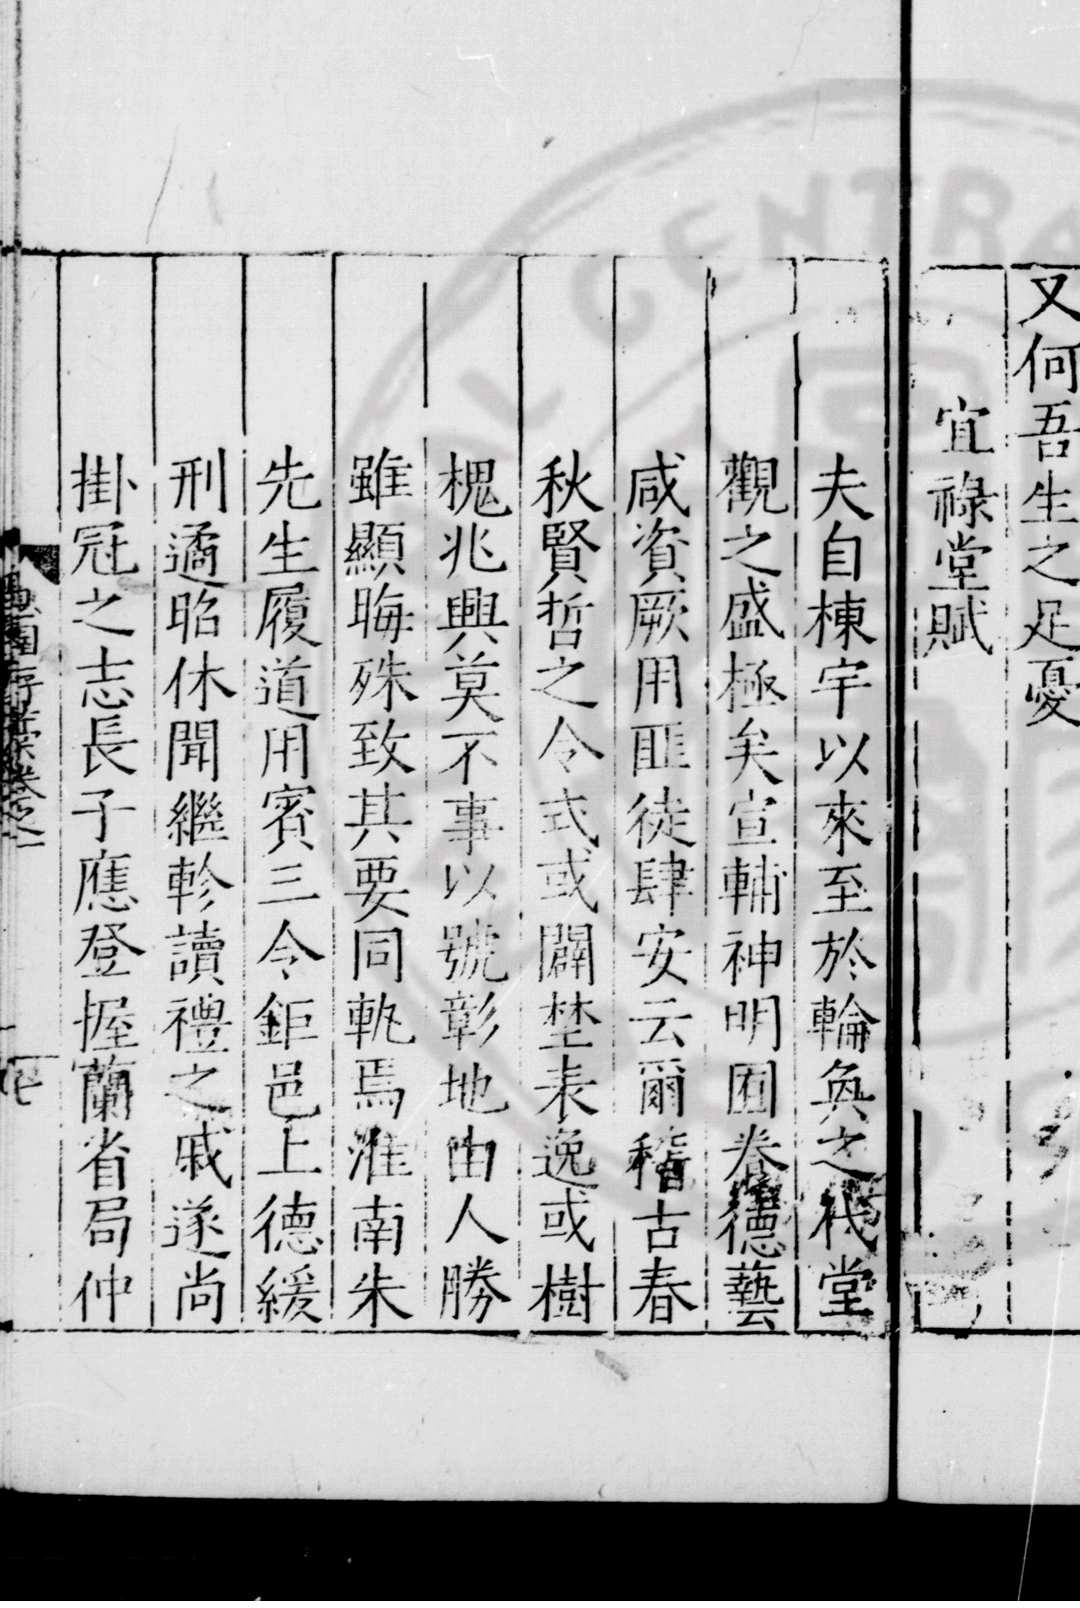 又何吾生之足憂
宜祿堂賦
夫自棟宇以來至於輪奐之代堂
觀之盛極矣宣輔神明囿養德藝
咸資厥用匪徒肆安云爾稽古春
秋賢哲之令式或闢埜表逸或樹
槐兆興莫不事以號彰地由人勝
雖顯晦殊致其要同軌焉淮南朱
先生履道用賓三令鉅邑上德緩
刑遹昭休聞繼軫讀禮之戚遂尚
掛冠之志長子應登握蘭省局仲